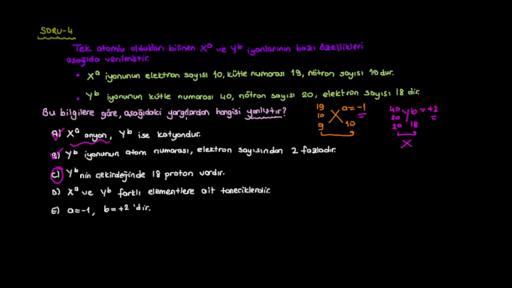 SORU-4
Tek atomlu oldukları bilinen Xᵃ ve Yᵇ iyonlarının bazı özellikleri
aşağıda verilmiştir.
• Xᵃ iyonunun elektron sayısı 10, kütle numarası 19, nötron sayısı 10'dur.
• Yᵇ iyonunun kütle numarası 40, nötron sayısı 20, elektron sayısı 18'dir.
Bu bilgilere göre, aşağıdaki yargılardan hangisi yanlıştır?
A) Xᵃ anyon, Yᵇ ise katyondur.
B) Yᵇ iyonunun atom numarası, elektron sayısından 2 fazladır.
C) Yᵇ'nin çekirdeğinde 18 proton vardır.
D) Xᵃ ve Yᵇ farklı elementlere ait taneciklerdir.
E) a=-1, b=+2'dir.
19 a=-1
10 X
9 10
40 b=+2
20 Y
20 18
X